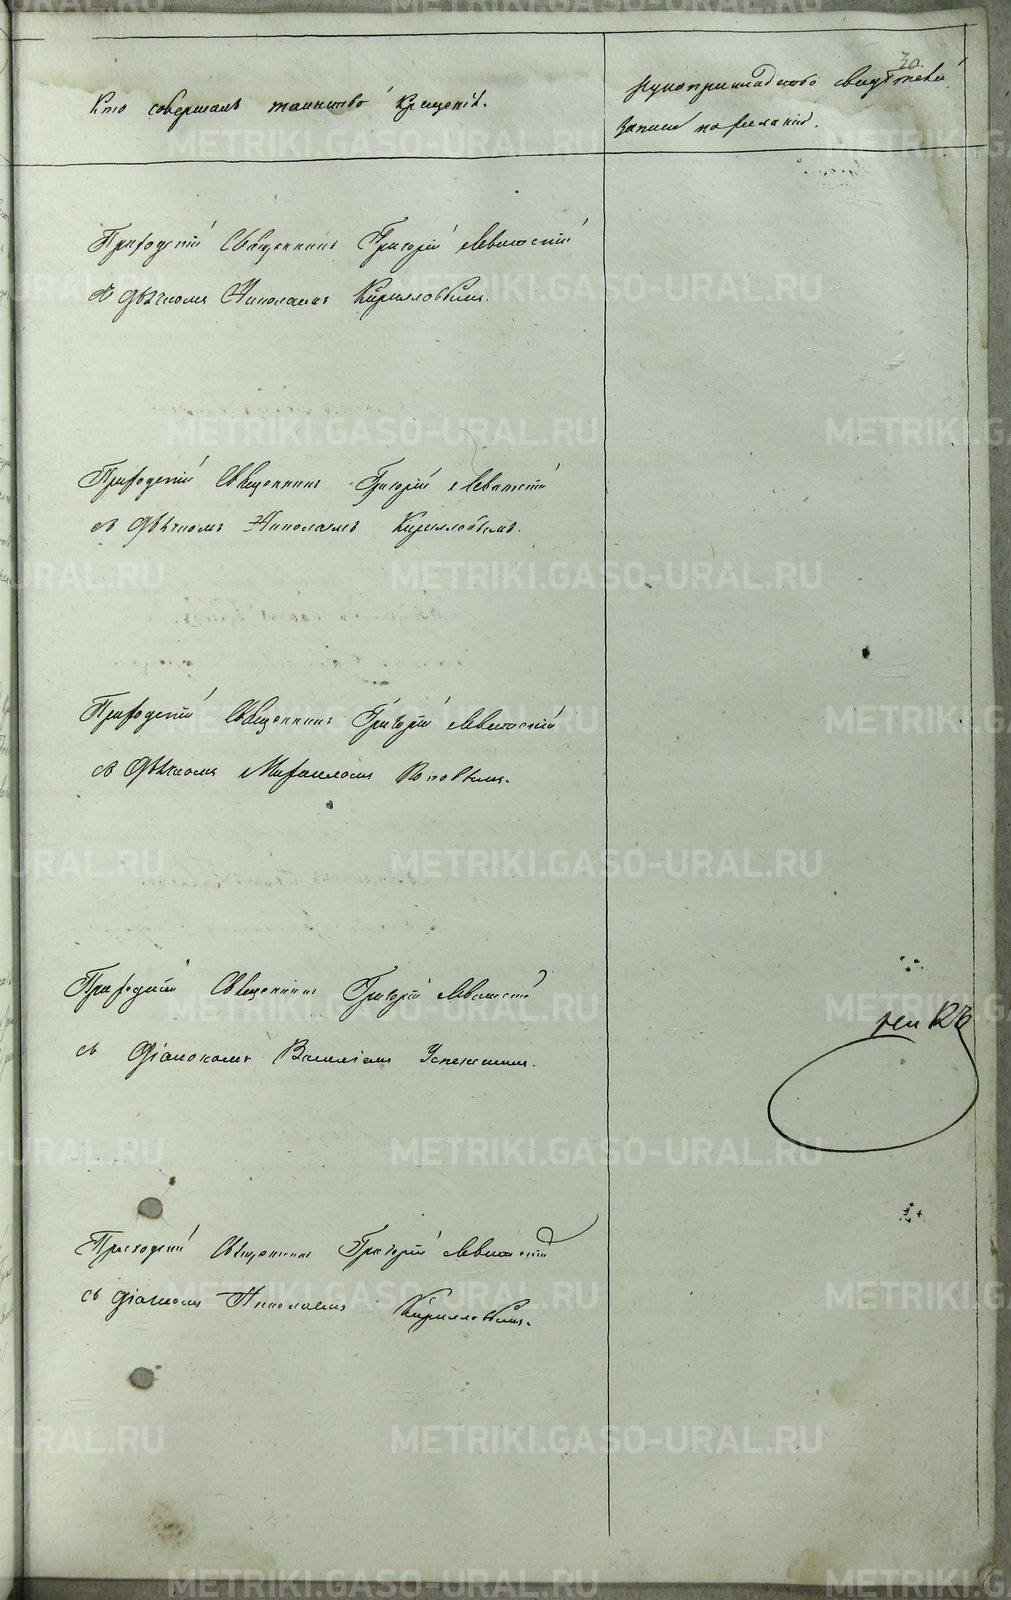 30.
Кто совершалъ таинство Крещенія.
Рукоприкладство свидѣтелей
записи по желанію.
Приходскій Священникъ Григорій Левитскій
съ дьячкомъ Николаемъ Кирилловымъ.
Приходскій Священникъ Григорій Левитскій
съ дьячкомъ Николаемъ Кирилловымъ.
Приходскій Священникъ Григорій Левитскій
съ дьячкомъ Михаиломъ Поповымъ.
Приходскій Священникъ Григорій Левитскій
съ Діакономъ Василіемъ Успенскимъ.
Приходскій Священникъ Григорій Левитскій
съ дьячкомъ Николаемъ Кирилловымъ.
METRIKI.GASO-URAL.RU